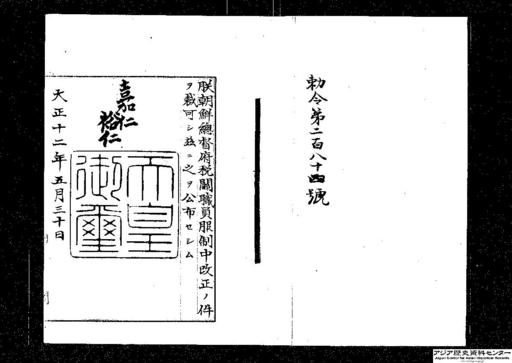 勅令第二百八十四號
朕朝鮮總督府税關職員服制中改正ノ件
ヲ裁可シ玆ニ之ヲ公布セシム
嘉仁
裕仁
天皇
御璽
大正十二年五月三十日
アジア歴史資料センター
Japan Center for Asian Historical Records